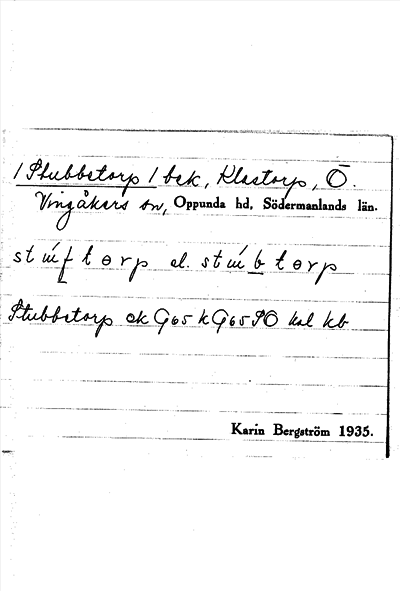 / Stubbetorp / bek, Klastorp, Ö.
Vingåkers sn, Oppunda hd, Södermanlands län.
el.
Stubbetorp ek G65 kG65 SO kal kb
Karin Bergström 1935.